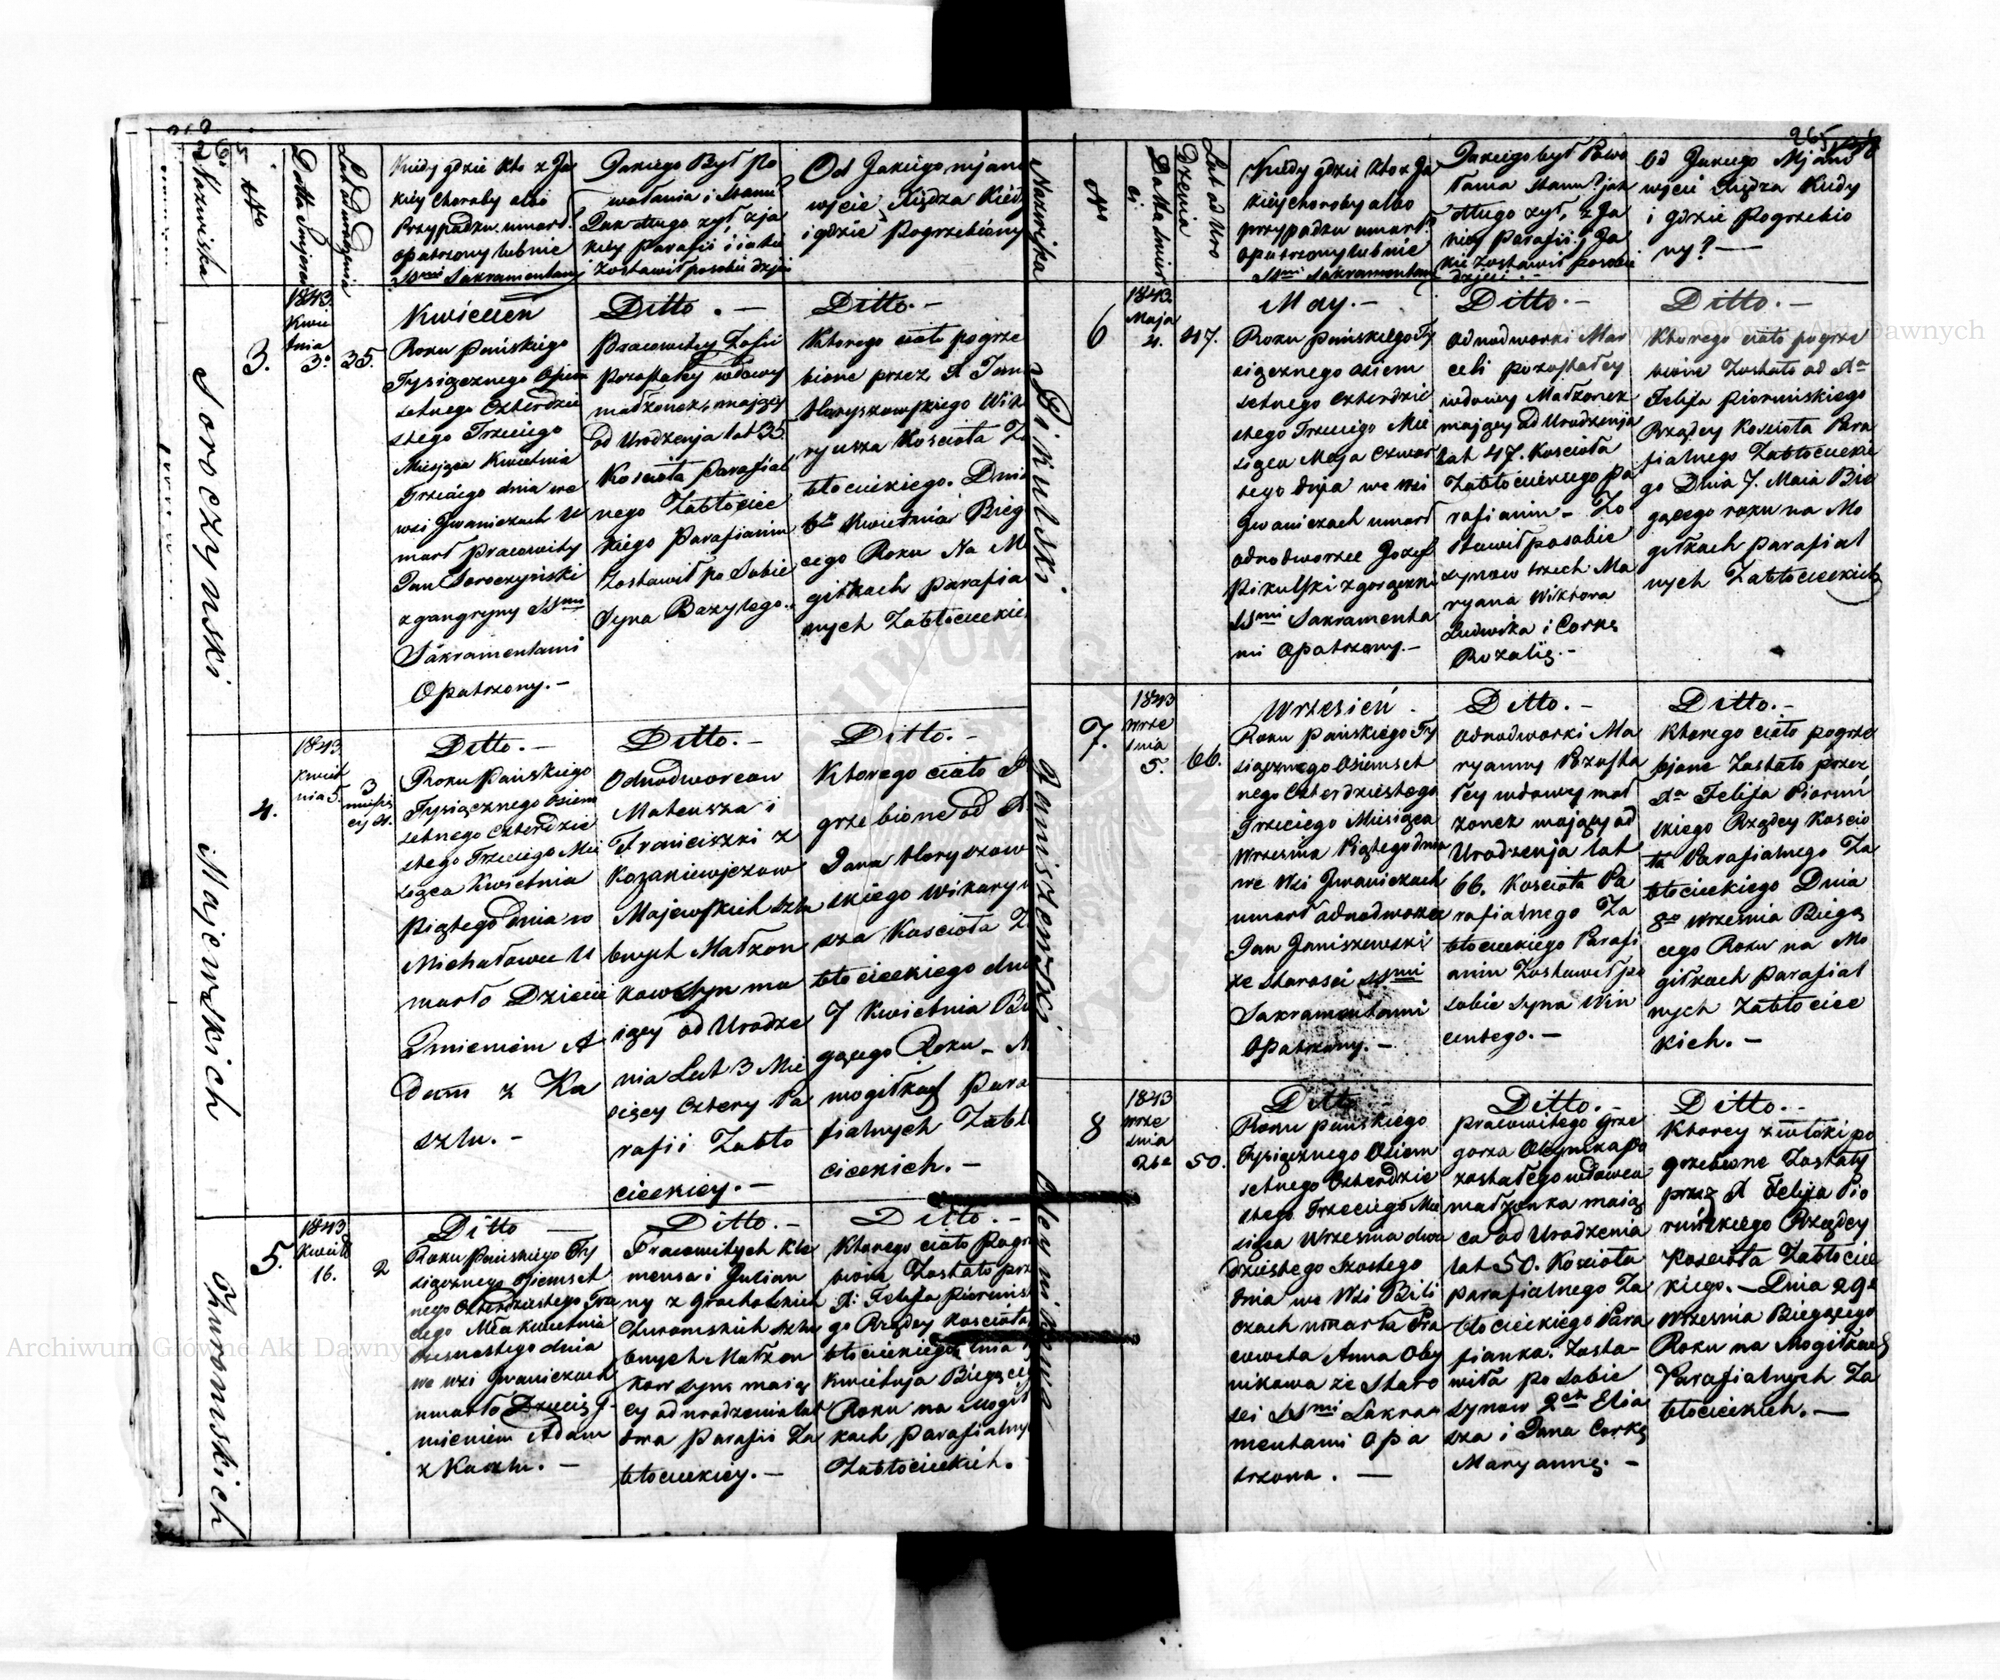 264
Nazwiska
No
Datta Śmierci
Lat od Urodzenia
Kiedy gdzie kto z Ja
kiey choroby albo
Przypadku umarł?
opatrzony lub nie
SSmi Sakramentami
Jakiego Był Po
wołania i stanu?
Jak długo żył, z ja
kiey Parafii, i jakie
zostawił po sobie dzieci
Od Jakiego mjano
wicie Xiędza Kiedy
i gdzie Pogrzebiony
Soroczynski
3.
1843.
Kwie
tnia
3o
35.
Kwiecień
Roku Pańskiego
Tysiącznego Osiem
setnego Czterdzie
stego Trzeciego
Miesiąca Kwietnia
Trzeciego dnia we
wsi Jwaniczach U
marł Pracowity
Jan Soroczyński
z gangryny SSmi
Sakramentami
Opatrzony.-
Ditto.-
Pracowitey Zofii
Pozostałey wdowy
małżonek, mający
od Urodzenja lat 35
Kościoła Parafial
nego Zabłociec
kiego Parafianin
Zostawił po Sobie
Syna Bazylego.-
Ditto.-
Ktorego ciało pogrze
bione przez X Jana
Horyszowskiego Wika
ryusza Kościoła Za
błocieckiego. Dnia
6o Kwietnia Bieg
cego Roku Na Mo
giłkach Parafia
nych Zabłocieckie
Majewskich
4.
1843.
Kwiet
nia 5.
3
miesię
cy 4.
Ditto.-
Roku Pańskiego
Tysiącznego Osiem
setnego Czterdzie
stego Trzeciego Mie
siąca Kwietnia
Piątego Dnia w
Michałowce U
marło Dziecie
Jmieniem A
dam z Ka
szlu.-
Ditto.-
Odnodworcow
Mateusza i
Franciszki z
Kazaniewiczow
Majewskich szlu
bnych Małżon
kow Syn ma
iący od Urodze
nia Lat 3 Mie
sięcy Cztery Pa
rafii Zabło
cieckiey.-
Ditto.-
Ktorego ciało P
grzebione od X
Jana Horyszow
skiego Wikaryu
sza Kościoła Za
błocieckiego dnia
7 Kwietnia Bie
gącego Roku - Na
mogiłkach Para
fialnych Zabł
cieckich.-
Kuromskich
5.
1843
Kwiet
16.
2
Ditto
Roku Pańskiego Ty
siącznego Osiemset
nego Czterdziestego Trze
ciego Mca Kwietnia
szesnastego dnia
we wsi Jwaniczach
umarło Dziecię J
mieniem Adam
z Kaszlu.-
Ditto.-
Pracowitych Kle
mensa i Julian
ny z Grochalskich
Kuromskich szlu
bnych Małżon
kow syn, maią
cy od urodzenia lat
dwa Parafii Za
błocieckiey.-
Ditto.-
Ktorego ciało Pogrz
bione Zostało prz
X: Felixa Pioruńs
go Rządcy Kościoła
błocieckiego dnia
Kwietnja Biegące
Roku na Mogił
kach Parafialny
Zabłocieckich.
265
Nazwiska
No
Datta śmier
ci
Lat od Uro
dzenia
Kiedy gdzie kto z Ja
kiey choroby albo
przypadku umarł?
opatrzony lub nie
SSmi Sakramentami
Jakiego był Powo
łania stanu? jak
długo żył, z Ja
kiey Parafii; i Ja
kie Zostawił po sobie
dzieci
Od Jakiego Mjano
wicie Xiędza Kiedy
i Gdzie Pogrzebio
ny?-
Pikulski
6
1843.
Maja
4.
47.
May.-
Roku Pańskiego Ty
siącznego Osiem
setnego Czterdzie
stego Trzeciego Mie
siąca Maja Czwar
tego dnja we wsi
Jwaniczach umarł
odnodworzec Jozef
Pikulski z gorączki
SSmi Sakramenta
mi Opatrzony.-
Ditto.-
Odnodworki Mar
celi pozostałey
wdowy Małżonek
mający od Urodzenja
lat 47. Kościoła
Zabłocieckiego Pa
rafianin - Zo
stawił po sobie
synow trzech Ma
ryana Wiktora
Ludwika i Corkę
Rozalię.-
Ditto.-
Ktorego ciało pogrze
bione Zostało od Xa
Felixa Pioruńskiego
Rządcy Kościoła Para
fialnego Zabłocieckie
go Dnia 7. Maia Bie
gącego roku na Mo
giłkach Parafial
nych Zabłocieckich
Janiszewski
7.
1843
Wrze
śnia
5.
66.
Wrzesień.
Roku Pańskiego Ty
siącznego Osiemset
nego Czterdziestego
Trzeciego Miesiąca
Września Piątego dnia
we Wsi Jwaniczach
umarł odnodworzec
Jan Janiszewski
ze starości SSmi
Sakramentami
Opatrzony.-
Ditto.-
Odnodworki Ma
ryanny Pozosta
łey wdowy mał
żonek mający od
Urodzenja lat
66. Kościoła Pa
rafialnego Za
błocieckiego Parafi
anin Zostawił po
sobie syna Win
centego.-
Ditto.-
Ktorego ciało pogrze
bjone Zostało przez
Xa Felixa Pioruń
skiego Rządcy Kościo
ła Parafialnego Za
błocieckiego Dnia
8go Września Biegą
cego Roku na Mo
giłkach Parafial
nych Zabłociec
kich.-
Oleynikowa
8
1843
Wrze
śnia
26o
50.
Ditto
Roku Pańskiego
Tysiącznego Osiem
setnego Czterdzie
stego Trzeciego Mie
siąca Września dwu
dziestego szostego
dnia we Wsi Bili
czach umarła Pra
cowita Anna Oley
nikowa ze staro
sci SSmi Sakra
mentami Opa
trzona.-
Ditto.-
Pracowitego Grze
gorza Oleynika Po
zostałego wdowca
małżonka maią
ca od Urodzenia
lat 50. Kościoła
Parafialnego Za
błocieckiego Para
fianka. Zosta-
wiła po Sobie
synow 2ch Elia
sza i Jana Corkę
Maryannę.-
Ditto.-
Ktorey zwłoki po
grzebione Zostały
przez X Felixa Pio
ruńskiego Rządcy
Kościoła Zabłociec
kiego.- Dnia 29o
Września Biegącego
Roku na Mogiłkach
Parafialnych Za
błocieckich.-
Archiwum Główne Akt Dawnych
Archiwum Główne Akt Dawnych